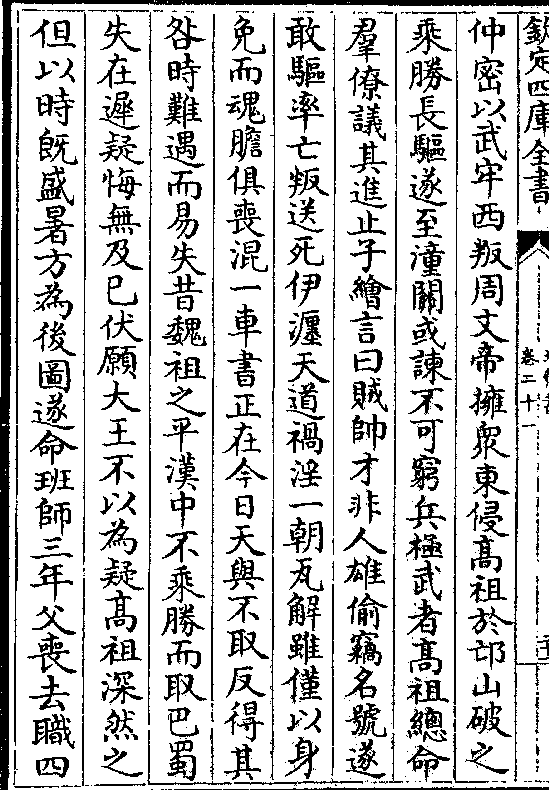 欽定四庫全書
卷二十一
仲密以武牢西叛周文帝擁衆東侵髙祖於邙山破之
乘勝長驅遂至潼關或諫不可窮兵極武者髙祖總命
羣僚議其進止子繪言曰賊帥才非人雄偷竊名號遂
敢驅率亡叛送死伊瀍天道禍淫一朝瓦解雖僅以身
免而魂膽俱喪混一車書正在今日天與不取反得其
咎時難遇而易失昔魏祖之平漢中不乘勝而取巴蜀
失在遲疑悔無及已伏願大王不以為疑髙祖深然之
但以時既盛暑方為後圖遂命班師三年父喪去職四